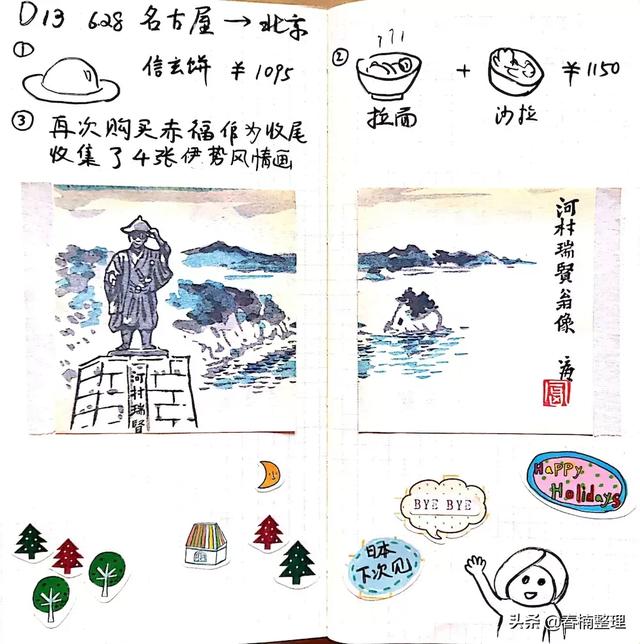 D13 6.28 名古屋 → 北京
① 信玄饼 ¥1095
② 拉面 + 沙拉 ¥1150
③ 再次购买赤福作为收尾
收集了4张伊势风情画
河村瑞賢
河村瑞賢翁像
BYE BYE
HAPPY
Holidays
日本
下次见
头条 @春楠整理